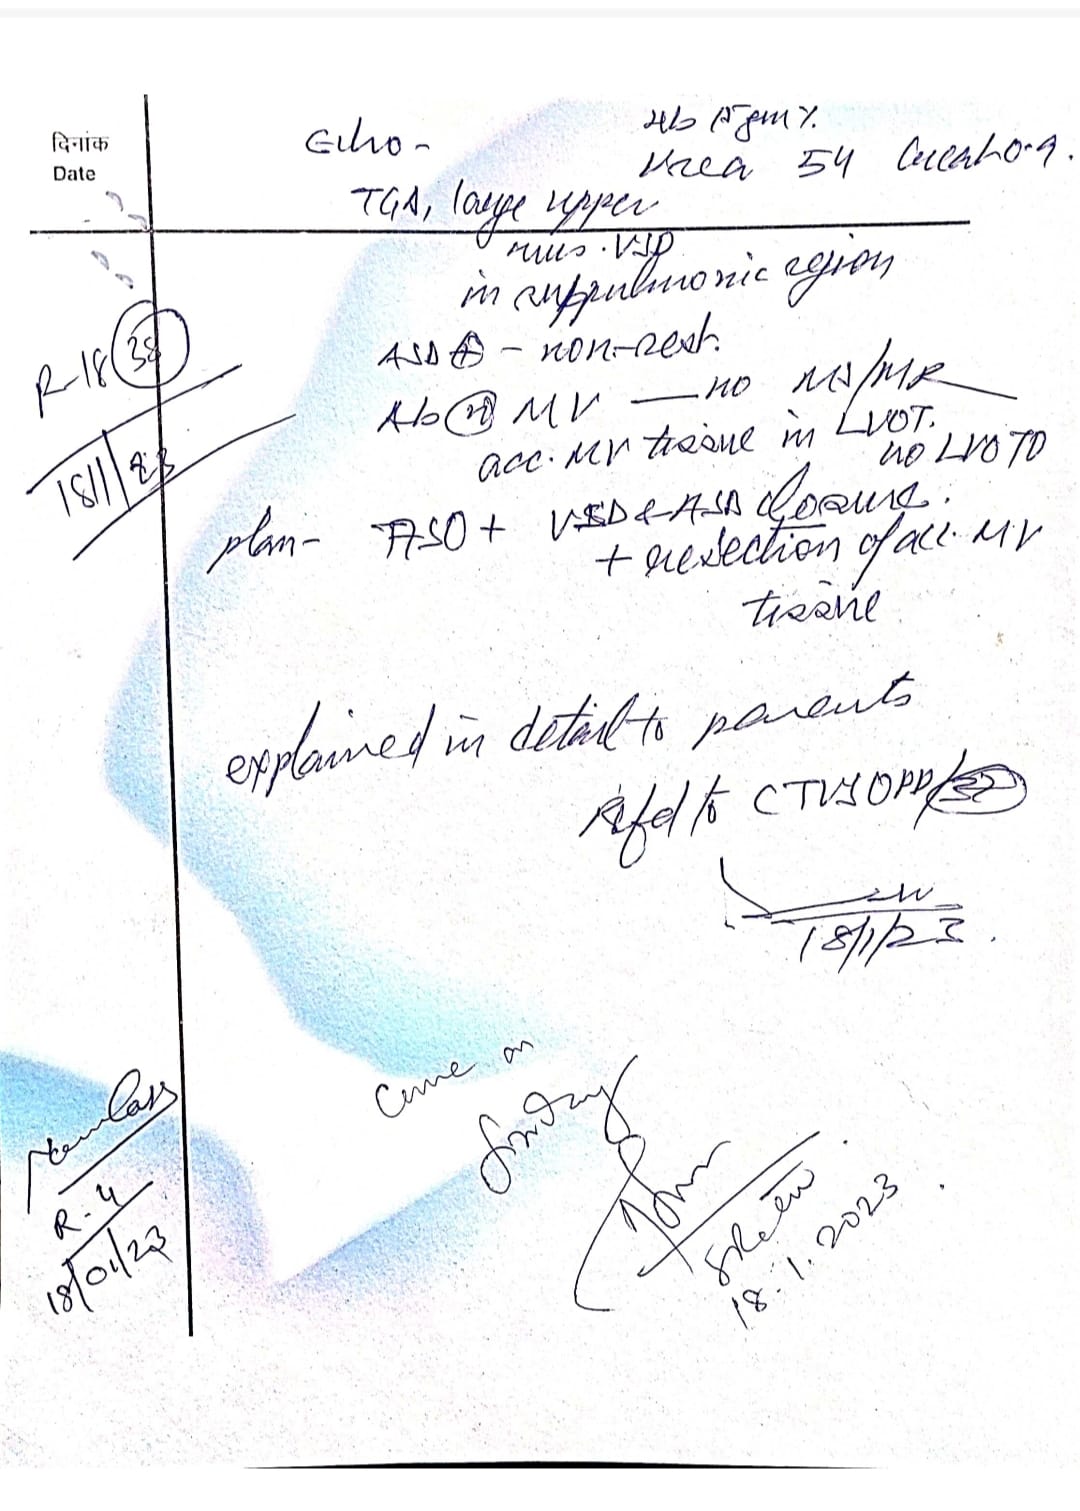 दिनांक
Date
Echo -
Hb 15 gm%.
Urea 54 Creat 0.9.
TGA, large upper
mus. VSD
in subpulmonic region
R-18 38
18/1/23
ASD ⊕ - non-rest.
Ab(n) MV — no MS/MR
acc. MV tissue in LVOT.
no LVOTO
plan - ASO + VSD & ASD closure.
+ resection of acc. MV
tissue
explained in detail to parents
Refd to CTVS OPD/
18/1/23.
Come on
R-4
18/01/23
18.1.2023.